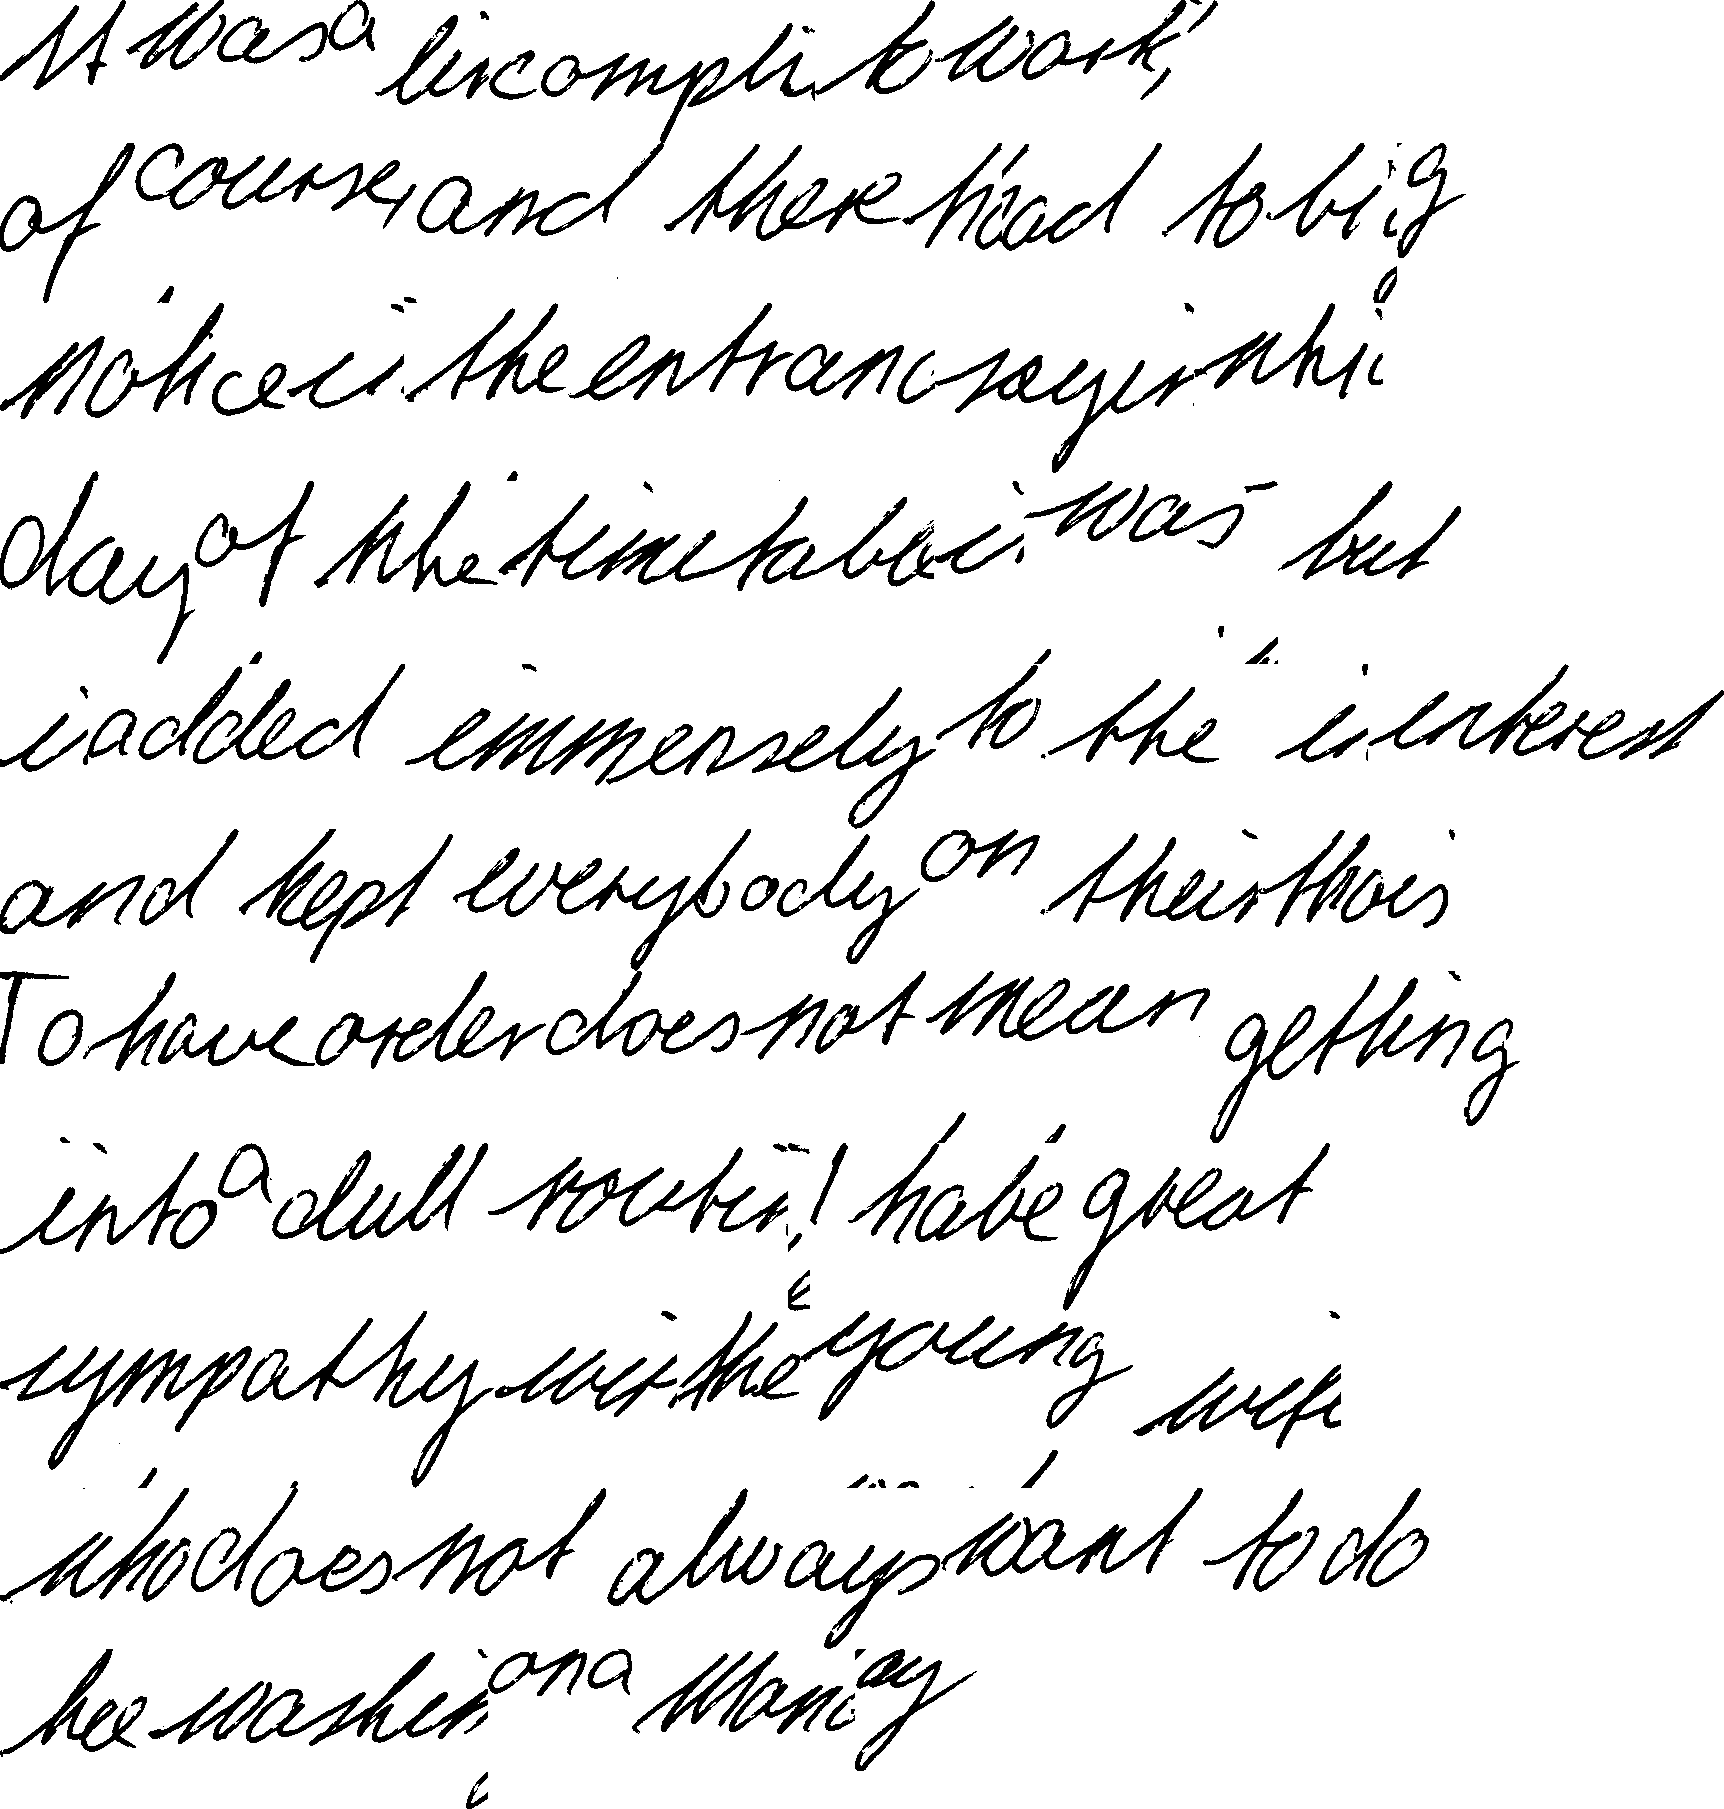 It was a to work,
of course, and there had to big
notice the entranc which
day of the timetable it was but
it added immensely to the interest
and kept everybody on their
To have order does not mean getting
into a dull routin! have great
sympathy with the young wife
who does not always want to do
her washin on a Monday